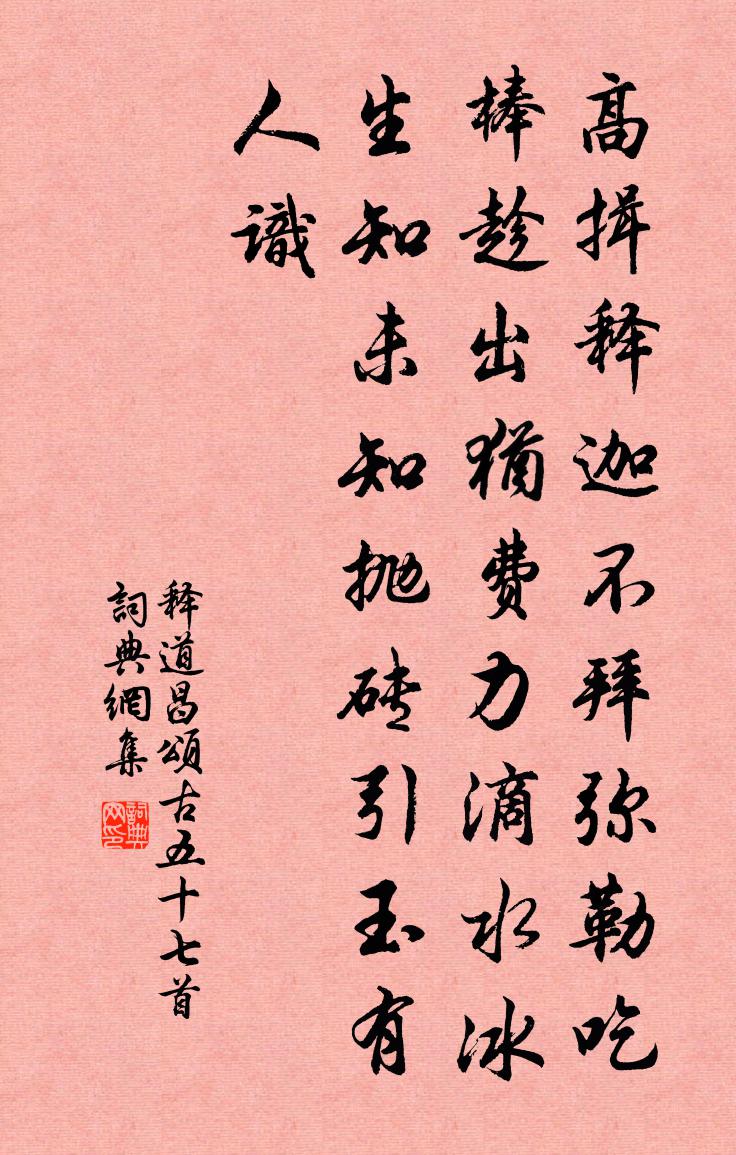 高揖释迦不拜弥勒吃
棒趁出犹費力滴水冰
生知未知抛砖引玉有
人識
释道昌頌古五十七首
詞典網集
詞典网印